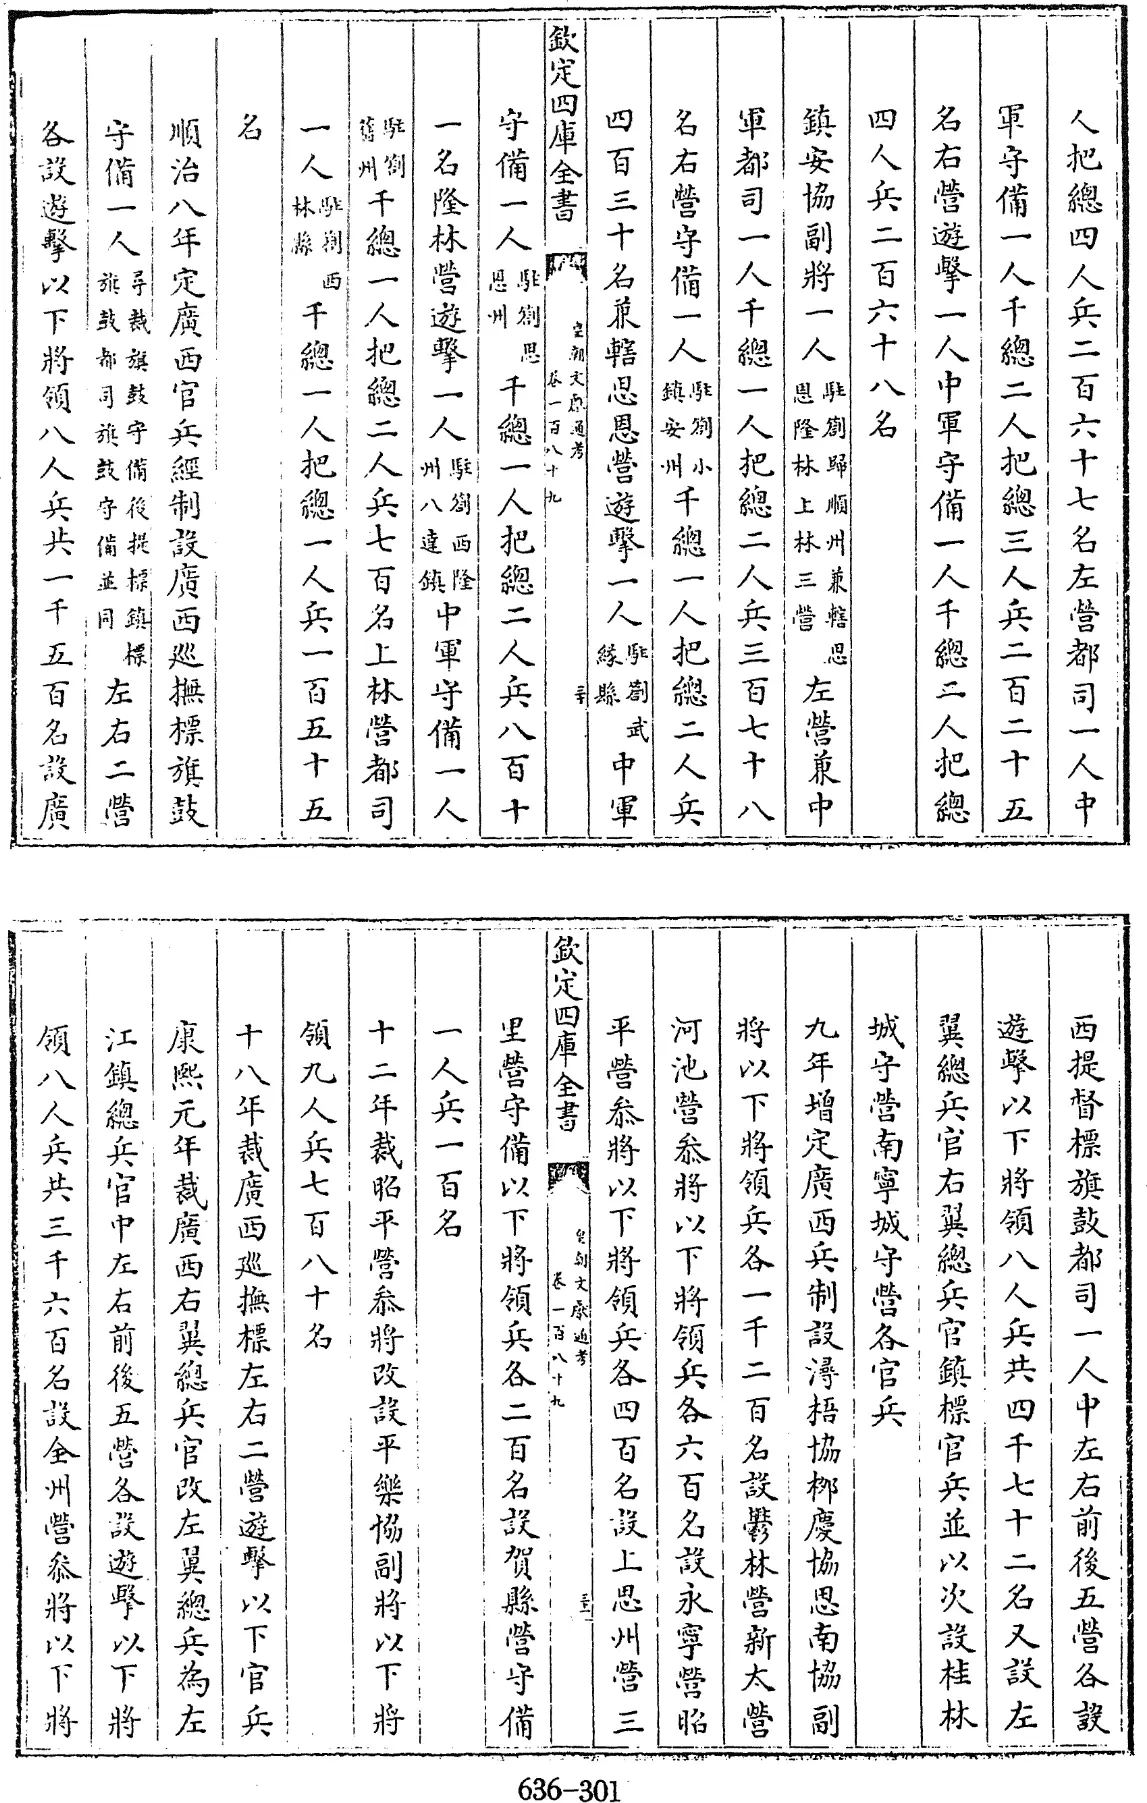 人把總四人兵二百六十七名左營都司一人中
軍守備一人千總二人把總三人兵二百二十五
名右營遊擊一人中軍守備一人千總二人把總
四人兵二百六十八名
鎮安協副將一人駐劄歸順州兼轄思恩隆林上林三營左營兼中
軍都司一人千總一人把總二人兵三百七十八
名右營守備一人駐劄小鎮安州千總一人把總二人兵
四百三十名兼轄思恩營遊擊一人駐劄武緣縣中軍
欽定四庫全書
皇朝文獻通考
卷一百八十九
三十
守備一人駐劄思恩州千總一人把總二人兵八百十
一名隆林營遊擊一人駐劄西隆州八達鎮中軍守備一人
駐劄舊州千總一人把總二人兵七百名上林營都司
一人駐劄西林縣千總一人把總一人兵一百五十五
名
順治八年定廣西官兵經制設廣西巡撫標旗鼓
守備一人尋裁旗鼓守備後提標鎮標旗鼓都司旗鼓守備並同左右二營
各設遊擊以下將領八人兵共一千五百名設廣
西提督標旗鼓都司一人中左右前後五營各設
遊擊以下將領八人兵共四千七十二名又設左
翼總兵官右翼總兵官鎮標官兵並以次設桂林
城守營南寧城守營各官兵
九年增定廣西兵制設潯梧協栁慶協思南協副
將以下將領兵各一千二百名設鬱林營新太營
河池營叅將以下將領兵各六百名設永寧營昭
平營叅將以下將領兵各四百名設上思州營三
欽定四庫全書
皇朝文獻通考
卷一百八十九
三十一
里營守備以下將領兵各二百名設賀縣營守備
一人兵一百名
十二年裁昭平營叅將改設平樂協副將以下將
領九人兵七百八十名
十八年裁廣西巡撫標左右二營遊擊以下官兵
康熙元年裁廣西右翼總兵官改左翼總兵為左
江鎮總兵官中左右前後五營各設遊擊以下將
領八人兵共三千六百名設全州營叅將以下將
636-301